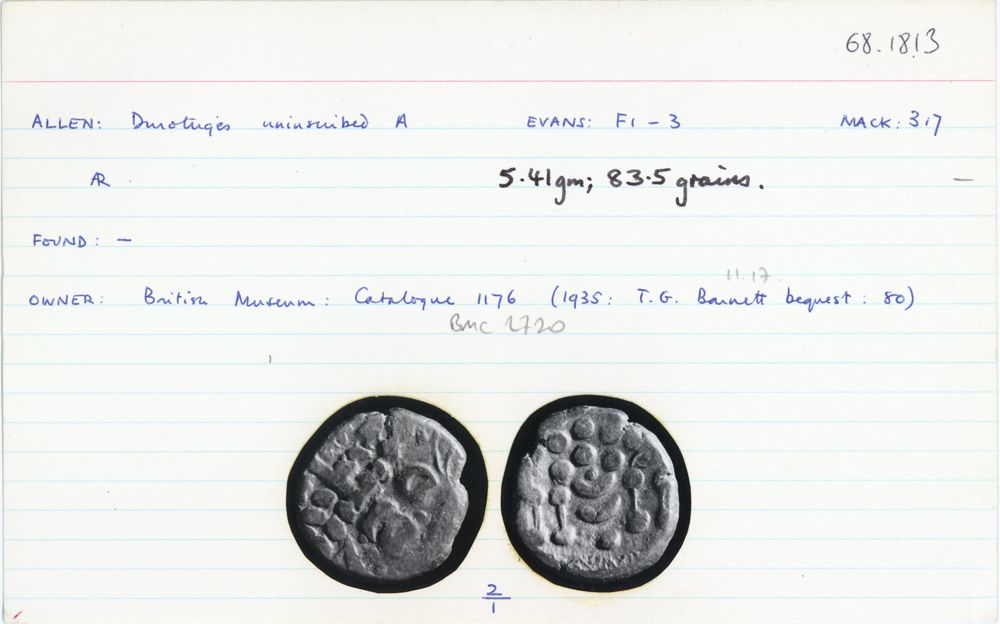 68.1813
ALLEN: Durotriges uninscribed A EVANS: F1 - 3 MACK: 317
AR 5.41gm; 83.5 grains. —
FOUND: —
11.17.
OWNER: British Museum: Catalogue 1176 (1935: T.G. Barnett bequest: 80)
BMC 2720
2
1